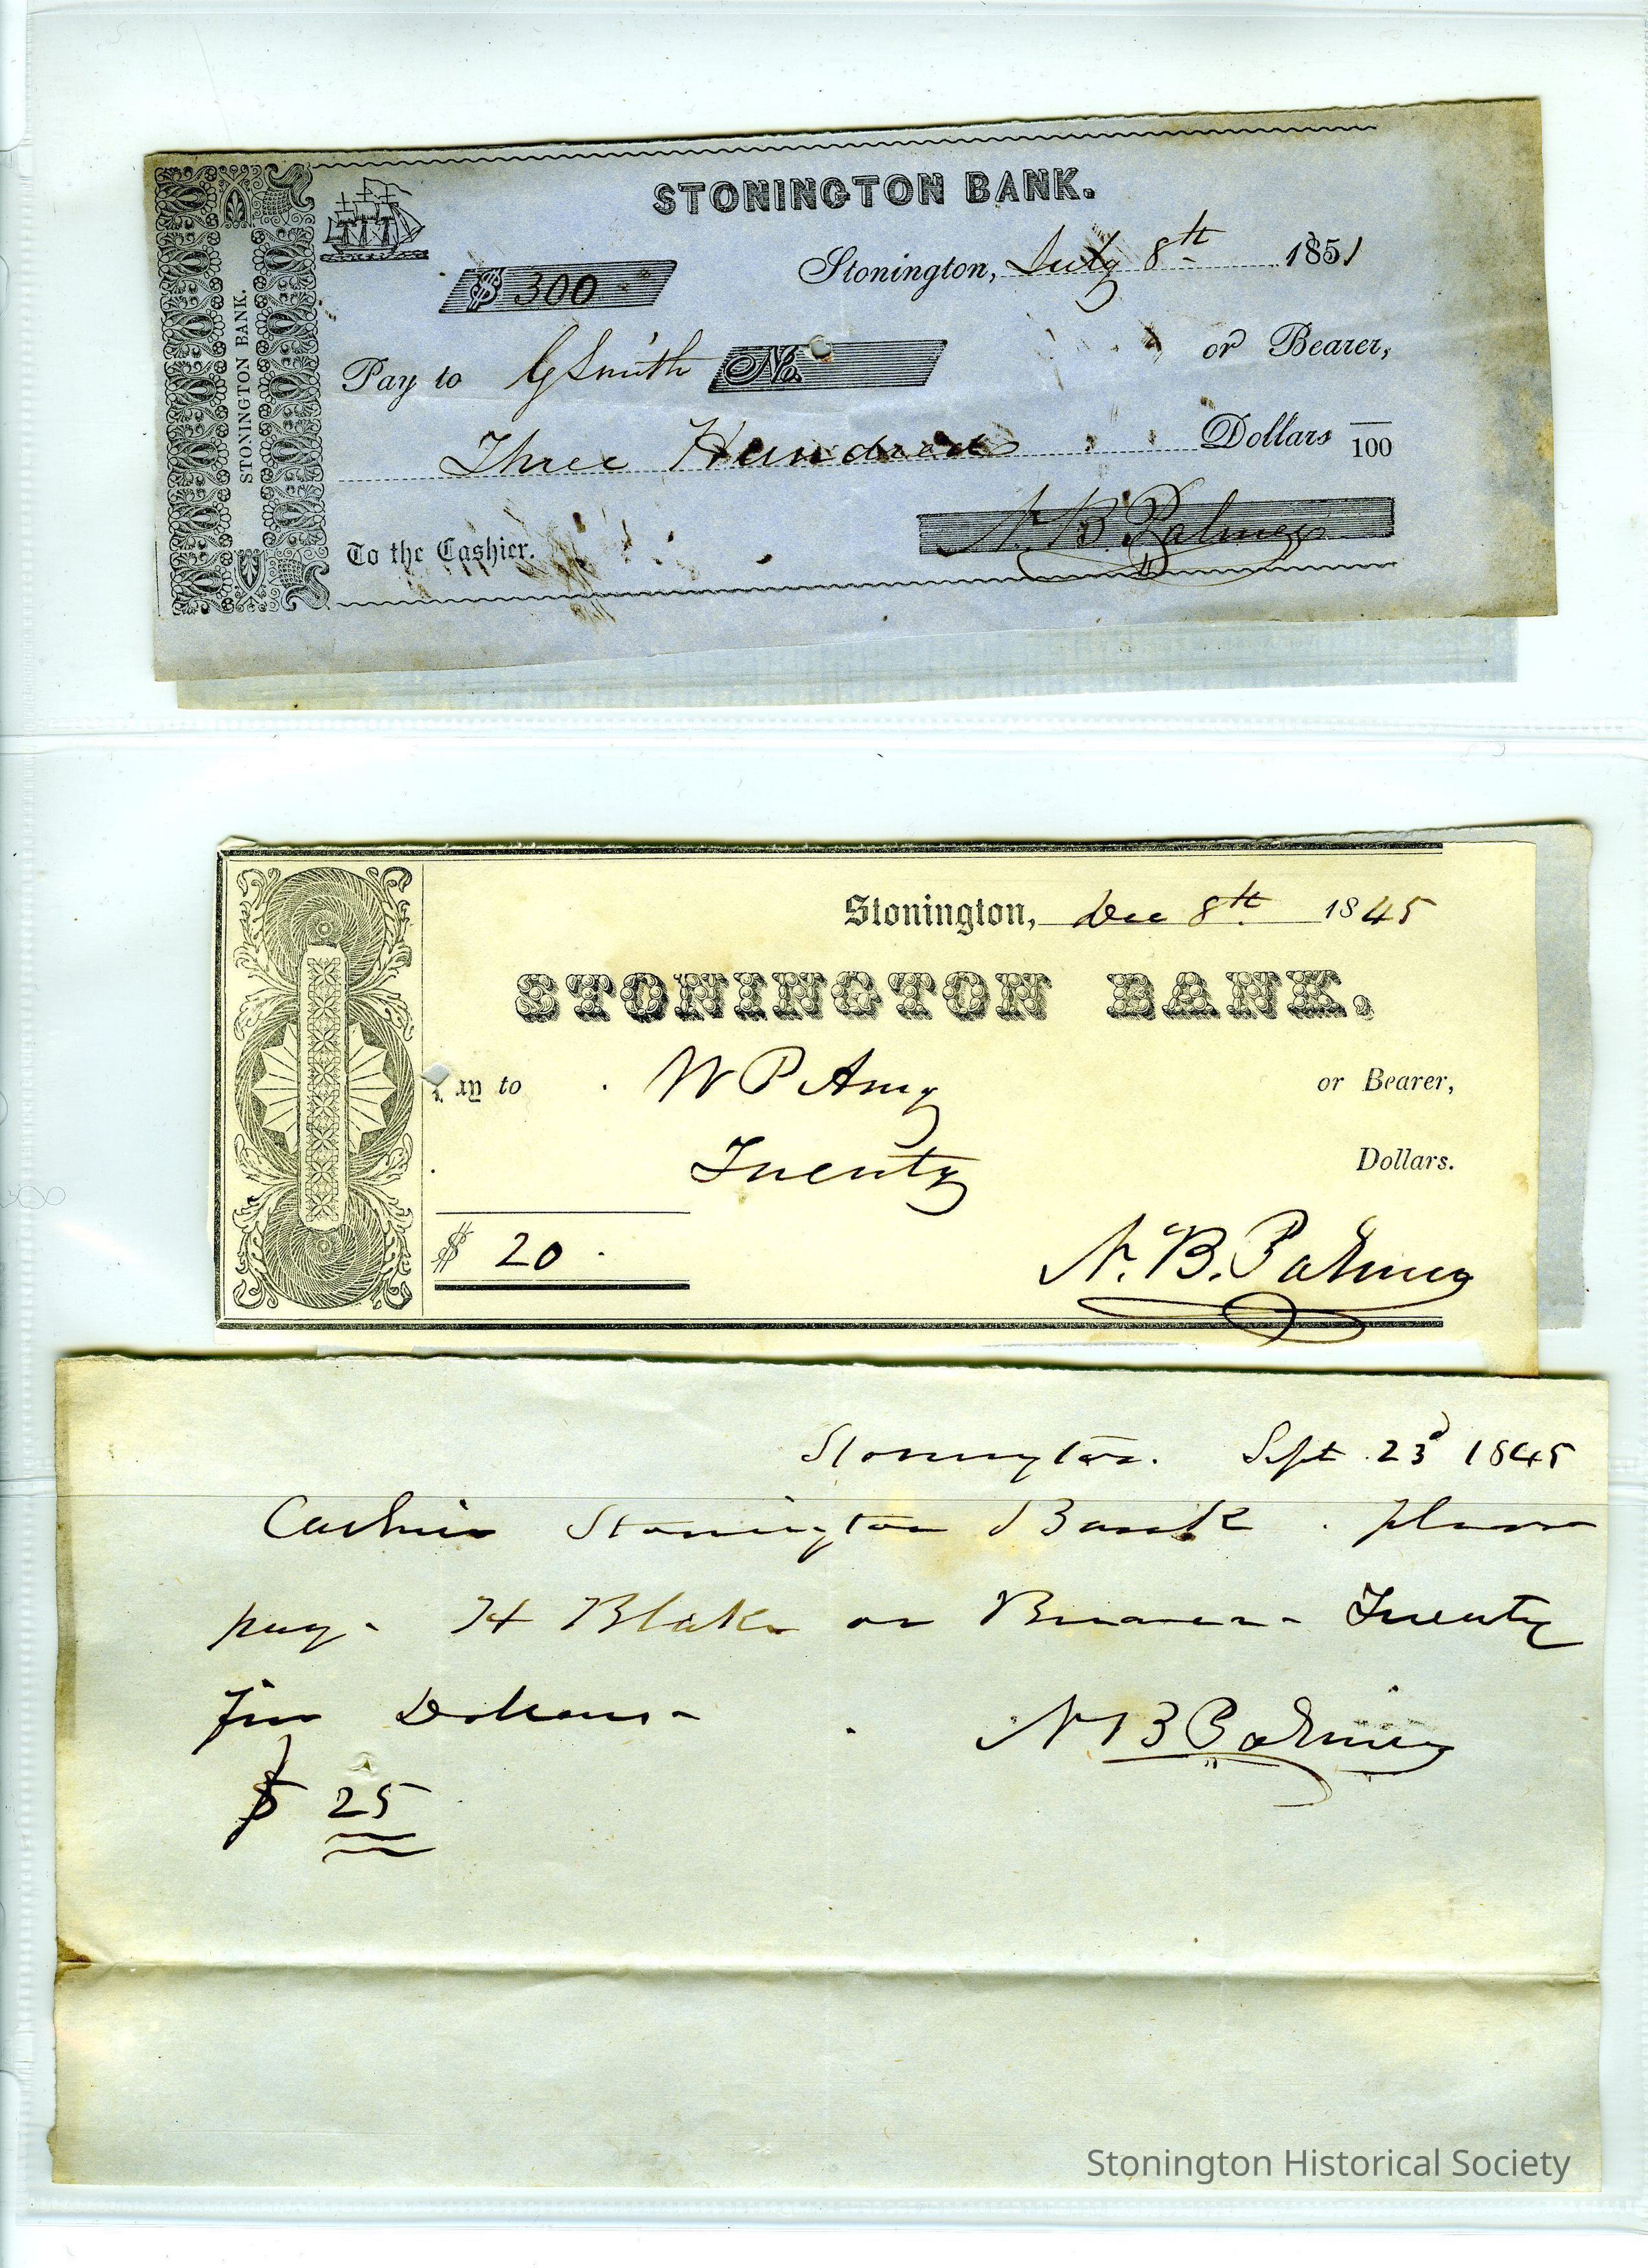 STONINGTON BANK.
STONINGTON BANK.
$ 300
Stonington, July 8th 1851
Pay to G Smith No. or Bearer,
Three Hundred Dollars /100
To the Cashier. N. B. Palmer
Stonington, Dec 8th 1845
STONINGTON BANK.
Pay to W P Amy or Bearer,
Twenty Dollars.
$ 20
N. B. Palmer
Stonington. Sept 23d 1845
Cashier Stonington Bank. please
pay H Blake or Bearer Twenty
five Dollars
N B Palmer
$ 25
Stonington Historical Society